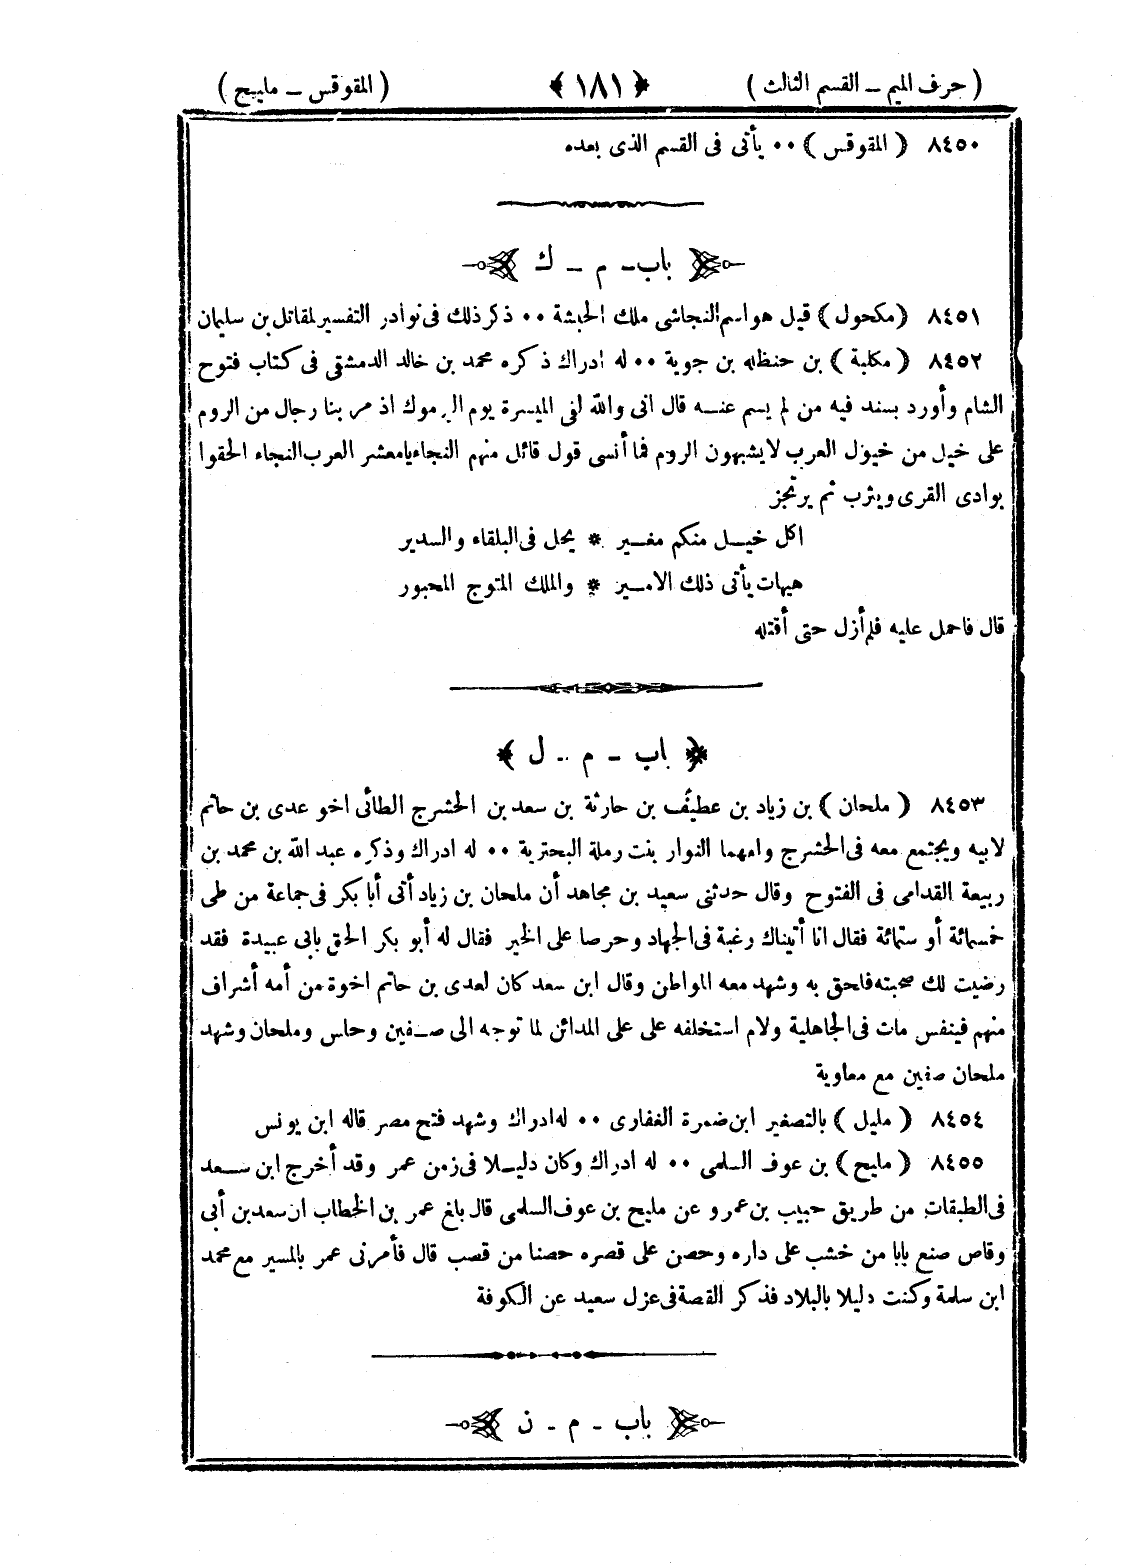 ( حرف الميم – القسم الثالث ) ﴿ ١٨١ ﴾ ( المقوقس – مليح )
٨٤٥٠ ( المقوقس ) ٠٠ يأتى فى القسم الذى بعده
﴿ باب – م – ك ﴾
٨٤٥١ ( مكحول ) قيل هو اسم النجاشى ملك الحبشة ٠٠ ذكر ذلك فى نوادر التفسير لمقاتل بن سليمان
٨٤٥٢ ( مكلبة ) بن حنظله بن جوية ٠٠ له ادراك ذكره محمد بن خالد الدمشقى فى كتاب فتوح
الشام وأورد بسند فيه من لم يسم عنه قال انى والله لفى الميسرة يوم اليرموك اذ مر بنا رجال من الروم
على خيل من خيول العرب لا يشبهون الروم فما أنسى قول قائل منهم النجاء يا معشر العرب النجاء الحقوا
بوادى القرى ويثرب ثم يرتجز
اكل خيل منكم مغير * يحل فى البلقاء والسدير
هيهات يأتى ذلك الامير * والملك المتوج المحبور
قال فاحمل عليه فلم أزل حتى أقتله
﴿ باب – م – ل ﴾
٨٤٥٣ ( ملحان ) بن زياد بن عطيف بن حارثة بن سعد بن الحشرج الطائى اخو عدى بن حاتم
لابيه ويجتمع معه فى الحشرج وامهما النوار بنت رملة البحترية ٠٠ له ادراك وذكره عبد الله بن محمد بن
ربيعة القدامى فى الفتوح وقال حدثنى سعيد بن مجاهد أن ملحان بن زياد أتى أبا بكر فى جماعة من طى
خمسمائة أو ستمائة فقال انا أتيناك رغبة فى الجهاد وحرصا على الخير فقال له أبو بكر الحق بابى عبيدة فقد
رضيت لك صحبته فلحق به وشهد معه المواطن وقال ابن سعد كان لعدى بن حاتم اخوة من أمه أشراف
منهم فينفس مات فى الجاهلية ولام استخلفه على على المدائن لما توجه الى صفين وحاس وملحان وشهد
ملحان صفين مع معاوية
٨٤٥٤ ( مليل ) بالتصغير ابن ضمرة الغفارى ٠٠ له ادراك وشهد فتح مصر قاله ابن يونس
٨٤٥٥ ( مليح ) بن عوف السلمى ٠٠ له ادراك وكان دليلا فى زمن عمر وقد أخرج ابن سعد
فى الطبقات من طريق حبيب بن عمرو عن مليح بن عوف السلمى قال بلغ عمر بن الخطاب ان سعد بن أبى
وقاص صنع بابا من خشب على داره وحصن على قصره حصنا من قصب قال فأمرنى عمر بالمسير مع محمد
ابن سلمة وكنت دليلا بالبلاد فذكر القصة فى عزل سعيد عن الكوفة
﴿ باب – م – ن ﴾